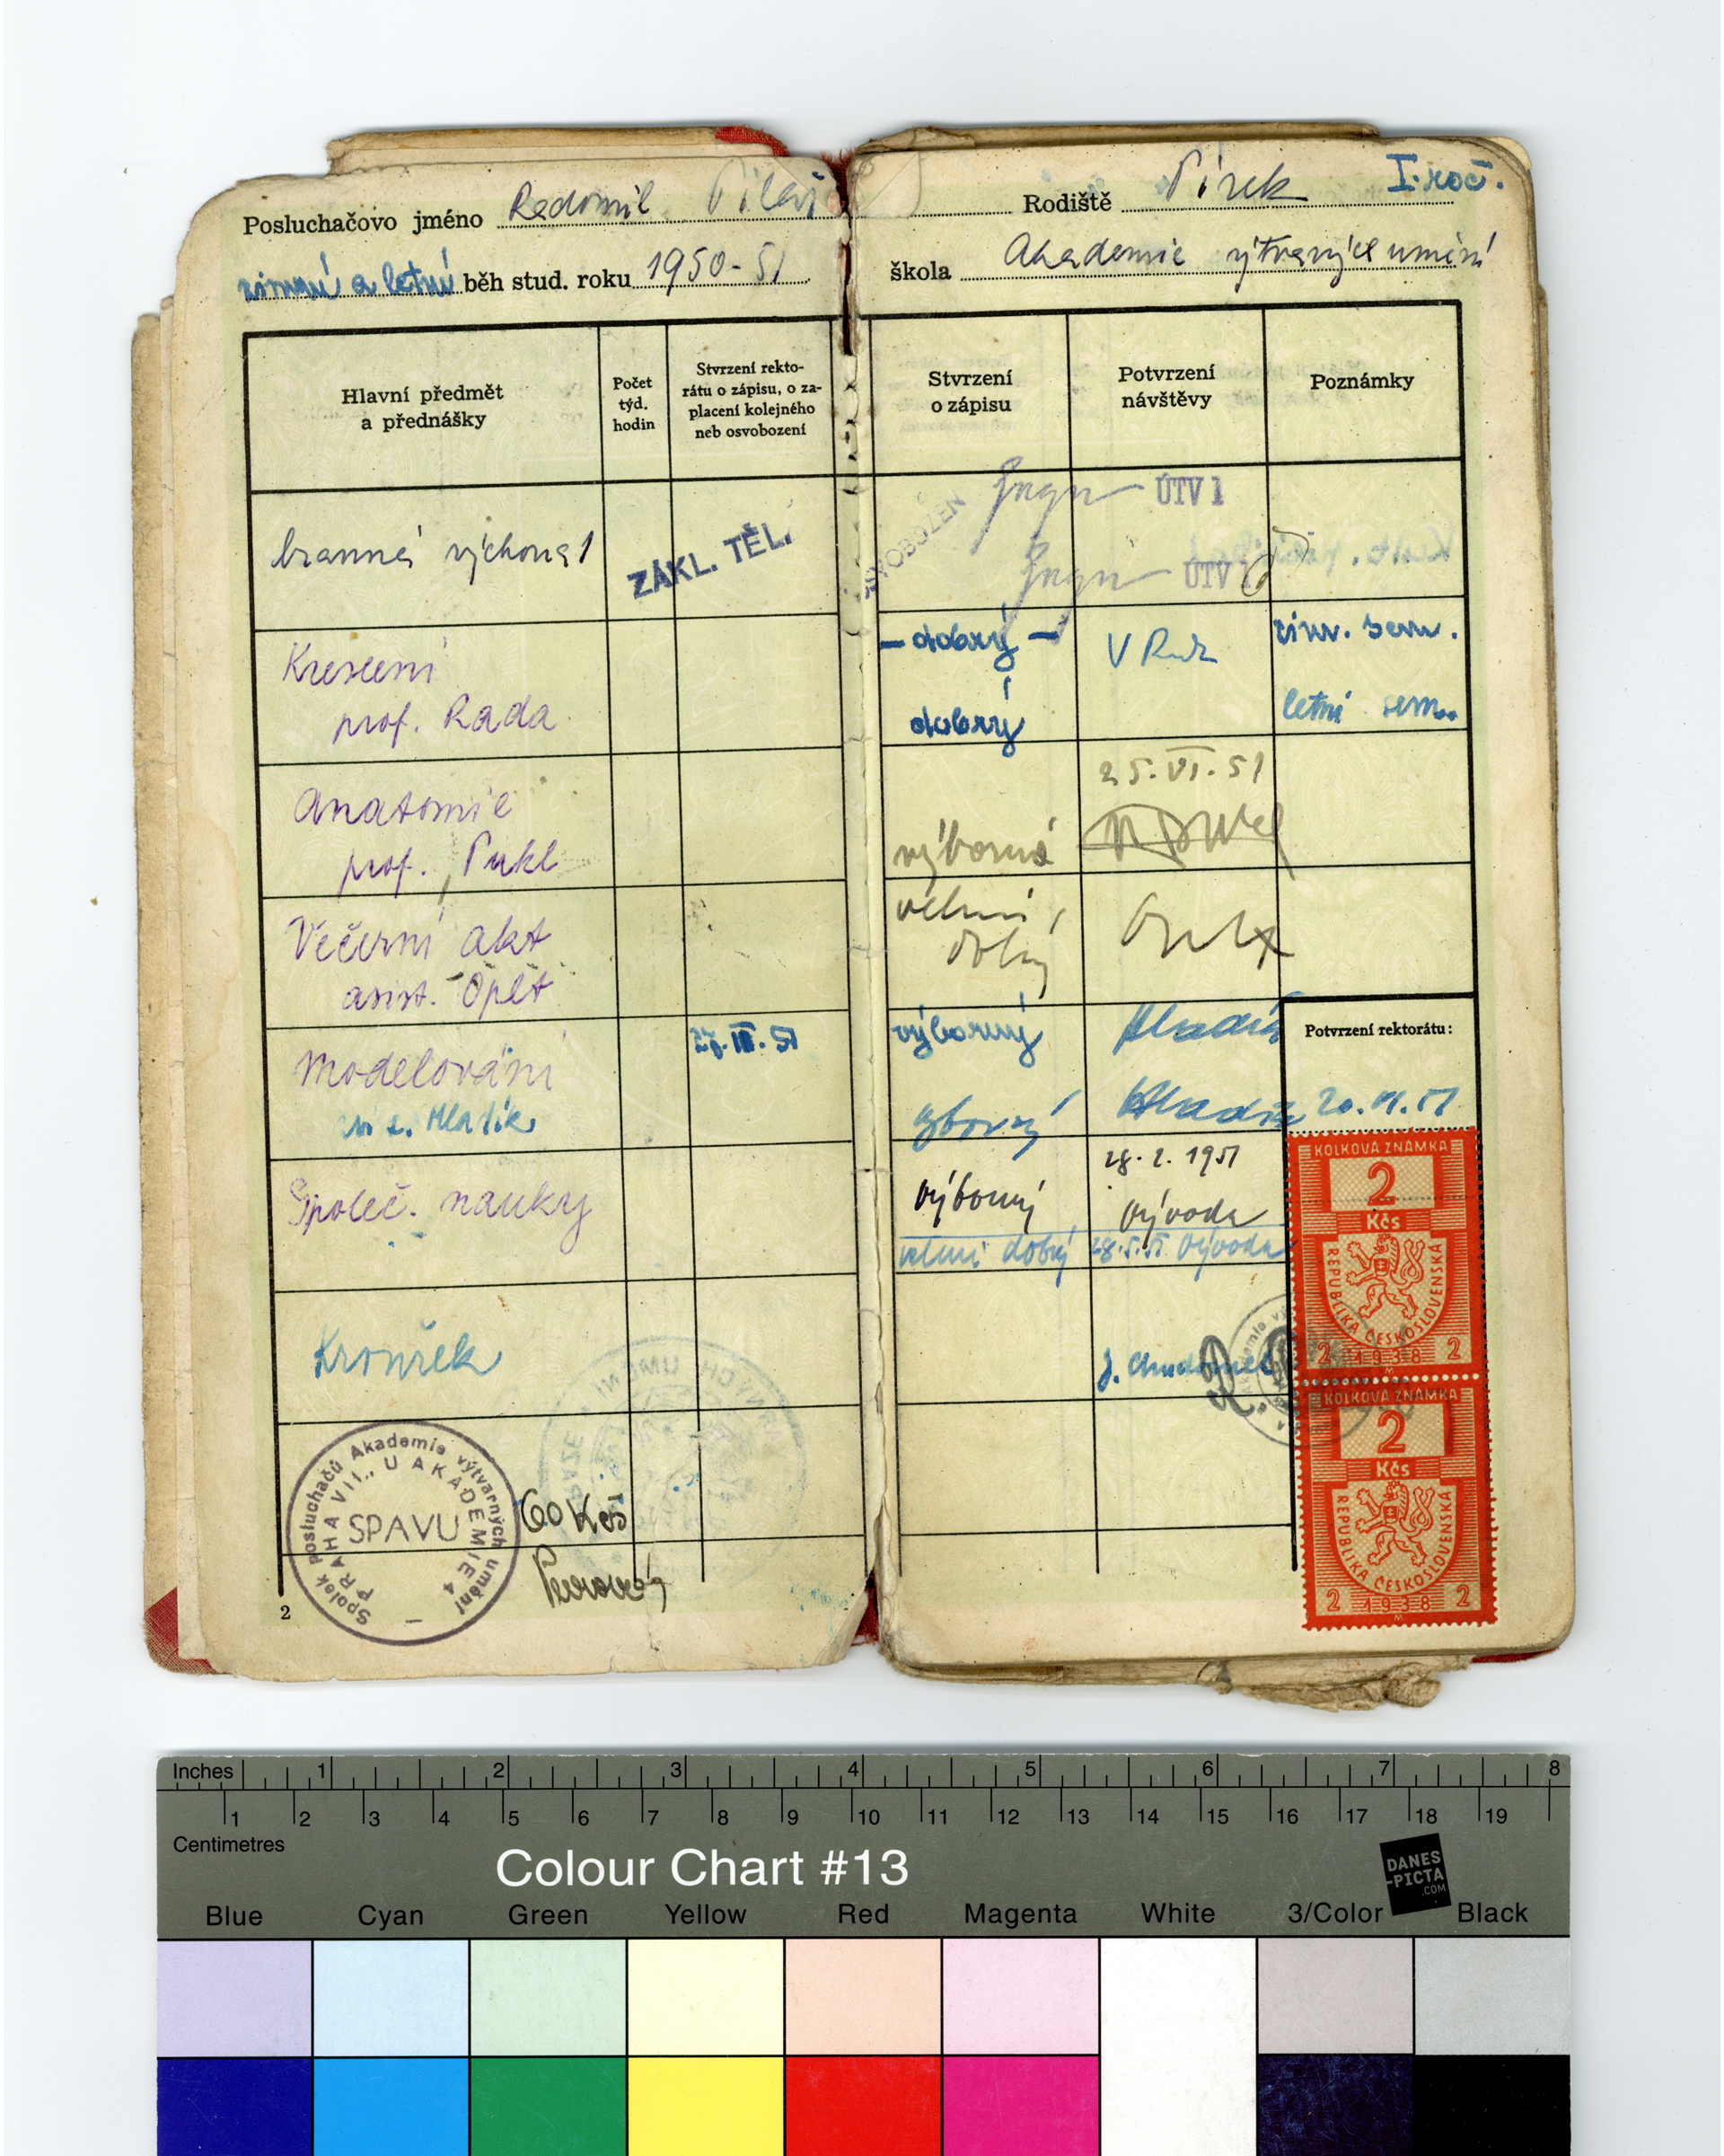 Posluchačovo jméno Radomil Pilař
Rodiště Písek I. roč.
zimní a letní běh stud. roku 1950-51
škola Akademie výtvarných umění
Hlavní předmět
a přednášky
Počet
týd.
hodin
Stvrzení rekto-
rátu o zápisu, o za-
placení kolejného
neb osvobození
Stvrzení
o zápisu
Potvrzení
návštěvy
Poznámky
branná výchova 1
ZÁKL. TĚL.
OSVOBOZEN
ÚTV 1
ÚTV 1
Kreslení
prof. Rada
- dobrý -
V Rada
zim. sem.
dobrý
letní sem.
Anatomie
prof. Pukl
25. VI. 51
výborná
Večerní akt
asist. Oplt
velmi
dobrý
Modelování
as. Hladík
výborný
Hladík
výborný
Hladík
Společ. nauky
28. 2. 1951
výborný
Vývoda
velmi dobrý 28.5.51 Vývoda
Kroužek
Potvrzení rektorátu:
KOLKOVÁ ZNÁMKA
2
Kčs
REPUBLIKA ČESKOSLOVENSKÁ
2 1938 2
M
KOLKOVÁ ZNÁMKA
2
Kčs
REPUBLIKA ČESKOSLOVENSKÁ
2 1938 2
M
Spolek posluchačů Akademie výtvarných umění
PRAHA VII., U AKADEMIE 4
SPAVU
60 Kčs
2
Inches 1 2 3 4 5 6 7 8
1 2 3 4 5 6 7 8 9 10 11 12 13 14 15 16 17 18 19
Centimetres
Colour Chart #13
DANES
-PICTA
.COM
Blue Cyan Green Yellow Red Magenta White 3/Color Black